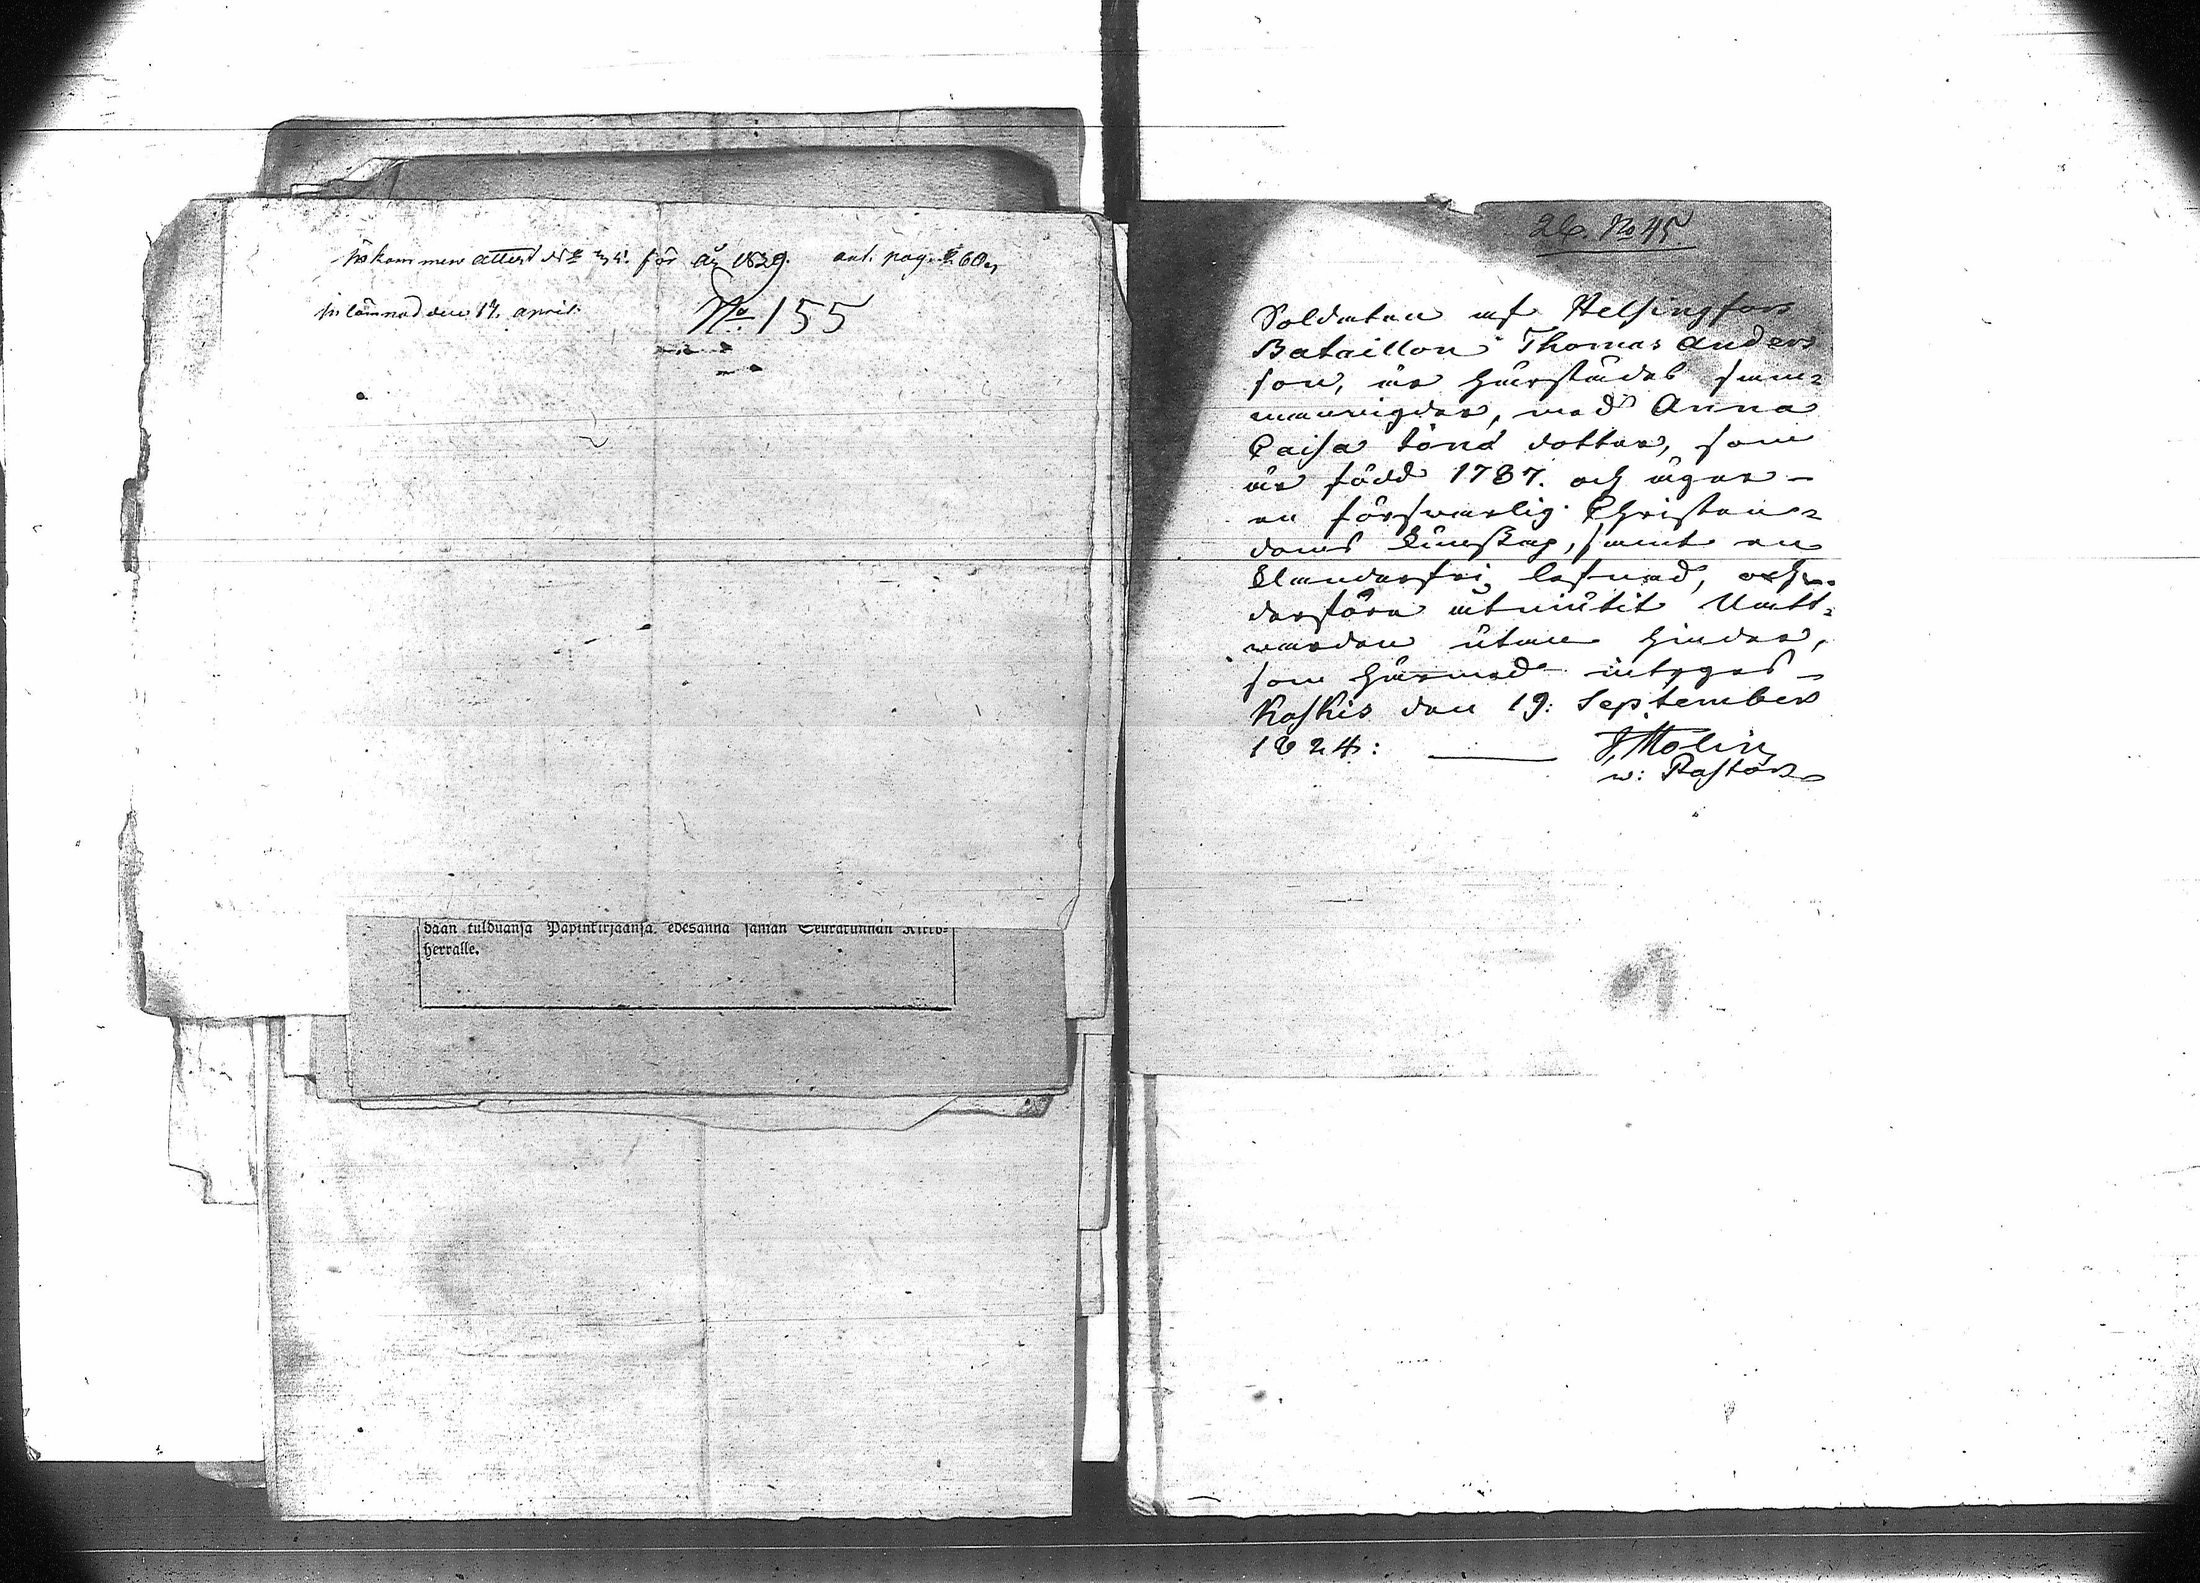 Inkommen attest No 35. för år 1829. ant. pag. 260.
Inlämnad den 17. april.
No 155
daan tulduansa Papinkirjaansa edesanna saman Seurakunnan Kirko-
herralle.
26. No 45
Soldaten af Helsingfors
Bataillon Thomas Anders
son, är härstädes sam-
manvigder, med Anna
Caisa dotter, som
är född 1787. och äger
en försvarlig Christen-
doms Kunskap, samt en
Klanderfri lefnad, och
derföre åtniutit Natt-
varden utan hinder,
som härmed intygas
Koskis den 19: September
1824: J. Molin
v: Pastor